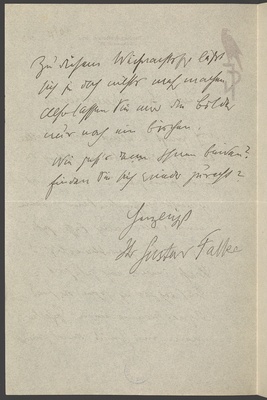 Zu diesem Weihnachtsfest läßt
sich ja doch nichts mehr machen,
Also lassen Sie mir die Bilder
nur noch ein bischen.
Wie geht's denn Ihnen beiden?
Finden Sie sich wieder zurecht?
Herzlichst
Ihr Gustav Falke